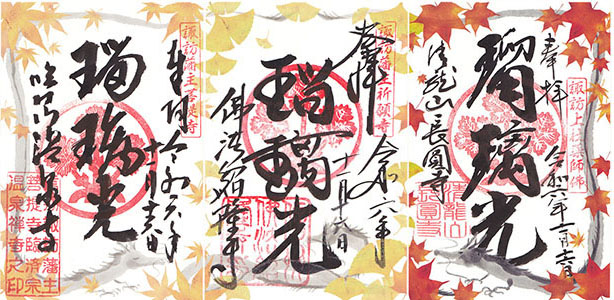 諏訪上社薬師佛
奉拝
令和六年
瑠璃光
清龍山長圓寺
清龍山
長圓寺
諏訪藩主祈願寺
奉拝
令和六年
十一月六日
瑠璃光
佛法紹隆寺
諏訪藩主菩提寺
奉拝
令和六年
十一月
瑠璃光
臨済
諏訪藩主
菩提寺臨済宗
温泉禅寺之印